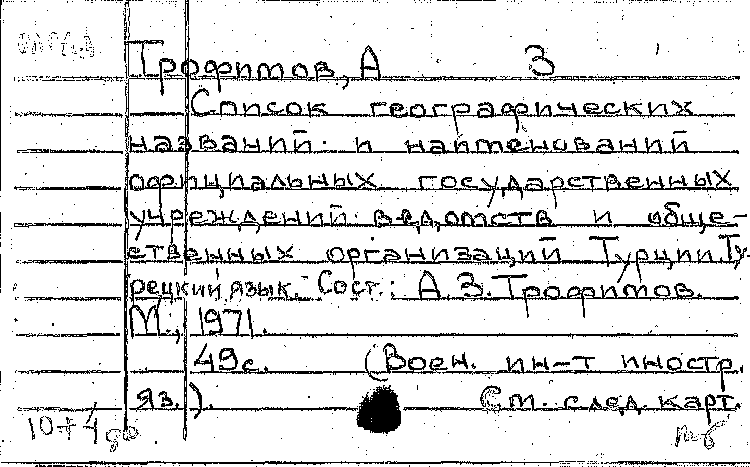 Трофимов, А З
Список географических
названий и наименований
официальных государственных
учреждений ведомств и обще-
ественных организаций Турции. Ту-
рецкий язык. Сост.: А.З. Трофимов.
М., 1971.
49с. (Воен. ин-т иностр.
яз.). См. след. карт.
10+4